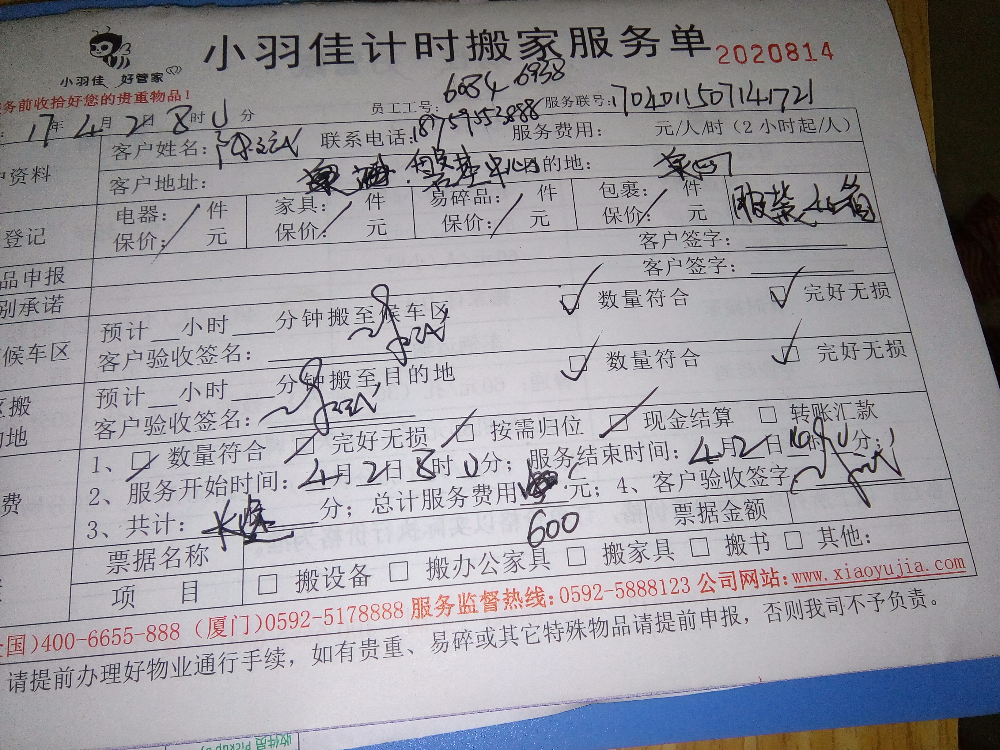 小羽佳计时搬家服务单 2020814
小羽佳 好管家
务前收拾好您的贵重物品！
员工工号： 6084 6938 服务联号：1704011507141721
17年4月2日8时U分
客户姓名： 联系电话：18759553888 服务费用： 元/人/时（2小时起/人）
户资料
客户地址： 目的地：
登记
电器： 件 家具： 件 易碎品： 件 包裹： 件 服装
保价： 元 保价： 元 保价： 元 保价： 元
品申报 客户签字：
别承诺 客户签字：
候车区
预计 小时 分钟搬至候车区 数量符合 完好无损
客户验收签名：
区搬
的地
预计 小时 分钟搬至目的地 数量符合 完好无损
客户验收签名：
费
1、 数量符合 完好无损 按需归位 现金结算 转账汇款
2、服务开始时间：4月2日8时U分；服务结束时间：4月2日 时U分；
3、共计： 长途 分；总计服务费用 元；4、客户验收签字
600
票据名称 票据金额
项 目 搬设备 搬办公家具 搬家具 搬书 其他：
全国)400-6655-888 (厦门)0592-5178888 服务监督热线：0592-5888123 公司网站：www.xiaoyujia.com
请提前办理好物业通行手续，如有贵重、易碎或其它特殊物品请提前申报，否则我司不予负责。